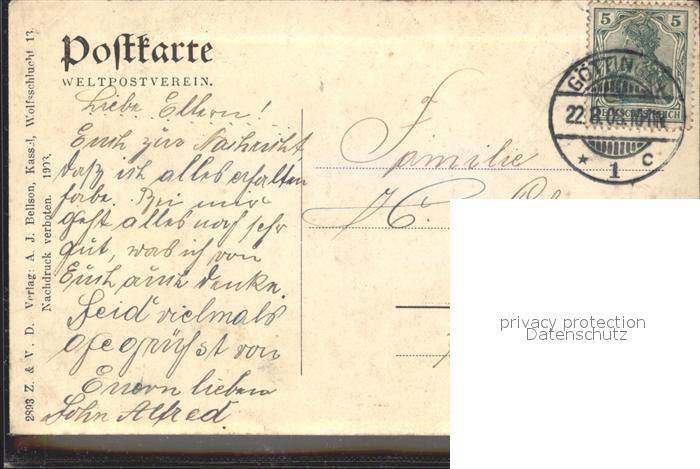 Postkarte
WELTPOSTVEREIN.
Liebe Eltern!
Euch zur Nachricht,
daß ich alles erhalten
habe. Bei mir
geht alles noch sehr
gut, was ich von
Euch auch denke.
Seid vielmals
gegrüßt von
Euern lieben
Sohn Alfred.
2893 Z. & V. D. Verlag: A. J. Bellson, Kassel, Wolfsschlucht 13.
Nachdruck verboten. 1903.
5 5
DEUTSCHES REICH
GÖTTINGEN
22.8.03
* 1 c
Familie
H.
privacy protection
Datenschutz